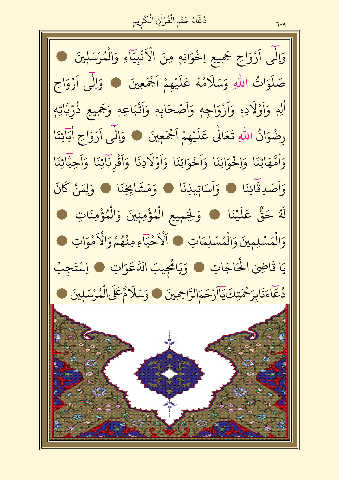 دُعَاءُ خَتْمِ الْقُرْاٰنِ الْكَرِيمِ ٦٠٨
وَاِلٰٓى اَرْوَاحِ جَمِيعِ اِخْوَانِهِ مِنَ الْاَنْبِيَٓاءِ وَالْمُرْسَلِينَ ●
صَلَوَاتُ اللهِ وَسَلَامُهُ عَلَيْهِمْ اَجْمَعِينَ ● وَاِلٰٓى اَرْوَاحِ
اٰلِهِ وَاَوْلَادِهِ وَاَزْوَاجِهِ وَاَصْحَابِهِ وَاَتْبَاعِهِ وَجَمِيعِ ذُرِّيَّاتِهِ
رِضْوَانُ اللهِ تَعَالٰى عَلَيْهِمْ اَجْمَعِينَ ● وَاِلٰٓى اَرْوَاحِ اٰبَٓائِنَا
وَاُمَّهَاتِنَا وَاِخْوَانِنَا وَاَخَوَاتِنَا وَاَوْلَادِنَا وَاَقْرِبَٓائِنَا وَاَحِبَّٓائِنَا
وَاَصْدِقَٓائِنَا ● وَاَسَاتِيذِنَا ● وَمَشَايِخِنَا ● وَلِمَنْ كَانَ
لَهُ حَقٌّ عَلَيْنَا ● وَلِجَمِيعِ الْمُؤْمِنِينَ وَالْمُؤْمِنَاتِ ●
وَالْمُسْلِمِينَ وَالْمُسْلِمَاتِ ● اَلْاَحْيَٓاءِ مِنْهُمْ وَالْاَمْوَاتِ ●
يَا قَاضِىَ الْحَاجَاتِ ● وَيَا مُجِيبَ الدَّعَوَاتِ ● اِسْتَجِبْ
دُعَٓاءَنَا بِرَحْمَتِكَ يَٓا اَرْحَمَ الرَّاحِمِينَ ● وَسَلَامٌ عَلَى الْمُرْسَلِينَ ●